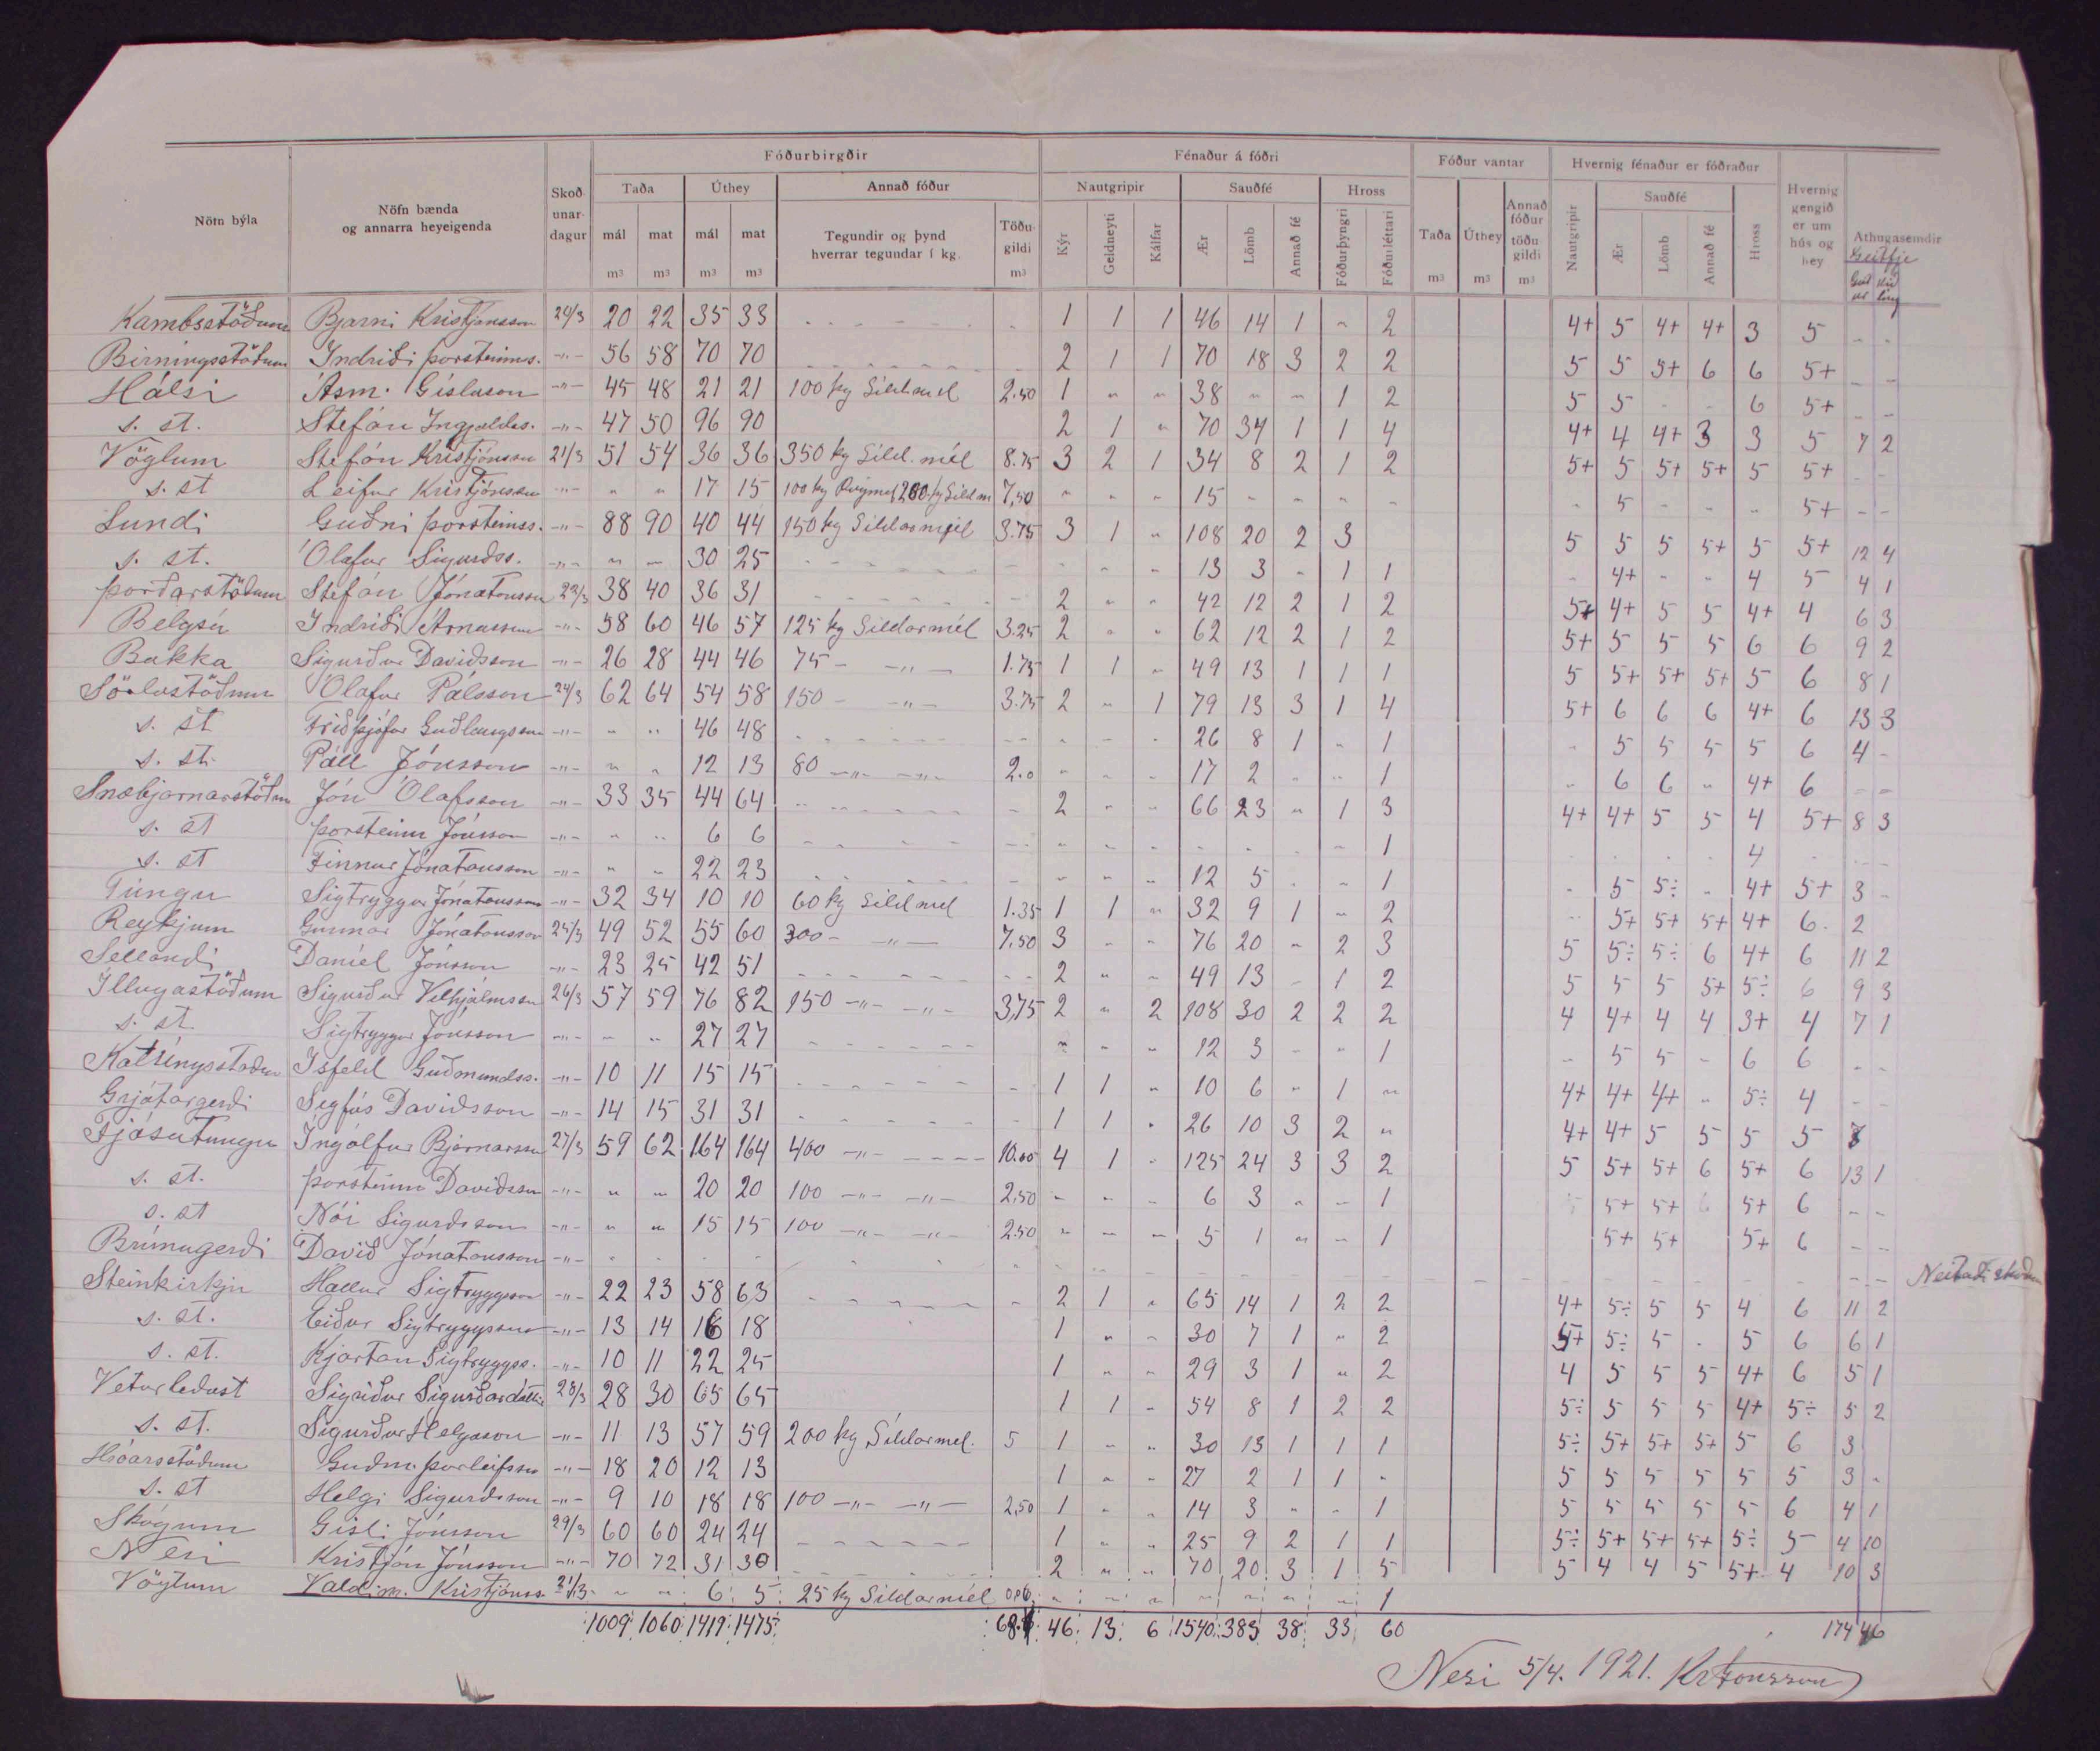 Fóðurbirgðir Fénaður á fóðri Fóður vantar Hvernig fénaður er fóðraður
Nöfn býla Nöfn bænda og annarra heyeigenda Skoð unar- dagur Taða Úthey Annað fóður Nautgripir Sauðfé Hross Taða Úthey Annað fóður töðu gildi Nautgripir Sauðfé Hross Hvernig gengið er um hús og hey Athugasemdir
mál mat mál mat Tegundir og þynd hverrar tegundar í kg. Töðu- gildi Kýr Geldneyti Kálfar Ær Lömb Annað fé Fóðurþyngri Fóðurléttari Ær Lömb Annað fé Geitfje
m³ m³ m³ m³ m³ m³ m³ m³
Kambsstöðum Bjarni Kristjánsson 20/3 20 22 35 33 1 1 1 46 14 1 „ 2 4+ 5 4+ 4+ 3 5 - -
Birningsstöðum Indriði Þorsteinss. -„- 56 58 70 70 2 1 1 70 18 3 2 2 5 5 5+ 6 6 5+ - -
Hálsi Ásm. Gíslason -„- 45 48 21 21 100 kg Síldmel 2.50 1 „ „ 38 „ „ 1 2 5 5 - - 6 5+ - -
s. st. Stefán Ingjaldss. -„- 47 50 96 90 2 1 „ 70 34 1 1 4 4+ 4 4+ 3 3 5 7 2
Vöglum Stefán Kristjánsson 21/3 51 54 36 36 350 kg Síld. mél 8.75 3 2 1 34 8 2 1 2 5+ 5 5+ 5+ 5 5+ - -
s. st Leifur Kristjánsson -„- „ „ 17 15 100 kg Rúgmel 200 kg Síldm 7,50 „ „ „ 15 - - - - - 5 - - - 5+ - -
Lundi Guðni Þorsteinss. -„- 88 90 40 44 150 kg Síldarmjél 3.75 3 1 „ 108 20 2 3 5 5 5 5+ 5 5+ 12 4
s. st. Ólafur Sigurðss. -„- „ - 30 25 - „ - 13 3 - 1 1 - 4+ - - 4 5 4 1
Þórðarstöðum Stefán Jónatansson 22/3 38 40 36 31 2 „ „ 42 12 2 1 2 5+ 4+ 5 5 4+ 4 6 3
Belgsá Indriði Árnason -„- 58 60 46 57 125 kg Síldarmél 3.25 2 „ „ 62 12 2 1 2 5+ 5 5 5 6 6 9 2
Bakka Sigurður Davíðsson -„- 26 28 44 46 75 - -„- 1.75 1 1 - 49 13 1 1 1 5 5+ 5+ 5+ 5 6 8 1
Sörlastöðum Ólafur Pálsson 24/3 62 64 54 58 150 - -„- 3.75 2 „ 1 79 13 3 1 4 5+ 6 6 6 4+ 6 13 3
s. st Friðþjófur Guðlaugsson -„- „ „ 46 48 - - - 26 8 1 „ 1 - 5 5 5 5 6 4 -
s. st. Páll Jónsson -„- „ „ 12 13 80 -„- -„- 2.0 „ - - 17 2 - „ 1 „ 6 6 „ 4+ 6 - -
Snæbjarnarstöðum Jón Ólafsson -„- 33 35 44 64 2 „ „ 66 23 „ 1 3 4+ 4+ 5 5 4 5+ 8 3
s. st Þorsteinn Jónsson -„- „ „ 6 6 - - - - - - - 1 - - - - 4 - - -
s. st Finnur Jónatansson -„- „ - 22 23 - - - 12 5 - „ 1 - 5 5÷ - 4+ 5+ 3 -
Túngu Sigtryggur Jónatansson -„- 32 34 10 10 60 kg Síldmel 1.35 1 1 „ 32 9 1 „ 2 - 5+ 5+ 5+ 4+ 6 2
Reykjum Gunnar Jónatansson 25/3 49 52 55 60 300 - -„- 7,50 3 „ „ 76 20 „ 2 3 5 5÷ 5÷ 6 4+ 6 11 2
Sellandi Daníel Jónsson -„- 23 25 42 51 2 „ - 49 13 - 1 2 5 5 5 5+ 5÷ 6 9 3
Illugastöðum Sigurður Vilhjálmsson 26/3 57 59 76 82 150 -„- -„- 3,75 2 „ 2 108 30 2 2 2 4 4+ 4 4 3+ 4 7 1
s. st. Sigtryggur Jónsson -„- - „ 27 27 „ - - 12 3 - - 1 - 5 5 - 6 6 - -
Katrínysstöðum Ísfeld Guðmundss. -„- 10 11 15 15 1 1 „ 10 6 „ 1 „ 4+ 4+ 4+ „ 5÷ 4 - -
Grjótárgerði Sigfús Davíðsson -„- 14 15 31 31 1 1 „ 26 10 3 2 „ 4+ 4+ 5 5 5 5 8
Fjósatungu Ingólfur Bjarnarson 27/3 59 62 164 164 400 -„- 10.00 4 1 - 125 24 3 3 2 5 5+ 5+ 6 5+ 6 13 1
s. st. Þorsteinn Davíðsson -„- „ - 20 20 100 -„- -„- 2,50 - - - 6 3 „ - 1 5+ 5+ 5+ 6 - -
s. st Nói Sigurðsson -„- „ „ 15 15 100 -„- -„- 2.50 „ - - 5 1 „ - 1 5+ 5+ 5+ 6 - -
Brúnugerði Davíð Jónatansson -„- - - - - - - - - - - - Neitaði skoðun
Steinkirkju Hallur Sigtryggsson -„- 22 23 58 63 2 1 „ 65 14 1 2 2 4+ 5÷ 5 5 4 6 11 2
s. st. Eiður Sigtryggsson -„- 13 14 16 18 1 „ - 30 7 1 „ 2 5+ 5÷ 5 - 5 6 6 1
s. st. Kjartan Sigtryggss. -„- 10 11 22 25 1 „ - 29 3 1 „ 2 4 5 5 5 4+ 6 5 1
Veturliðast Sigríður Sigurðardóttir 28/3 28 30 65 65 1 1 - 54 8 1 2 2 5÷ 5 5 5 4+ 5÷ 5 2
s. st. Sigurður Helgason -„- 11 13 57 59 200 kg Síldarmel. 5 1 „ „ 30 13 1 1 1 5÷ 5+ 5+ 5+ 5 6 3
Hróarsstöðum Guðm. Þorleifsson -„- 18 20 12 13 1 „ - 27 2 1 1 - 5 5 5 5 5 5 3 -
s. st Helgi Sigurðsson -„- 9 10 18 18 100 -„- -„- 2,50 1 „ „ 14 3 „ „ 1 5 5 5 5 5 6 4 1
Skógum Gísli Jónsson 29/3 60 60 24 24 1 „ „ 25 9 2 1 1 5÷ 5+ 5+ 5+ 5÷ 5 4 10
Nesi Kristján Jónsson -„- 70 72 31 30 2 „ „ 70 20 3 1 5 5 4 4 5 5+ 4 10 3
Vöglum Valdim. Kristjánss. 21/3 - „ „ 6 5 25 kg Síldarmél 0,06 „ - „ „ „ „ „ 1
1009 1060 1419 1475 46 13 6 1540 383 38 33 60 174 46
Nesi 5/4. 1921. Kr Jónsson